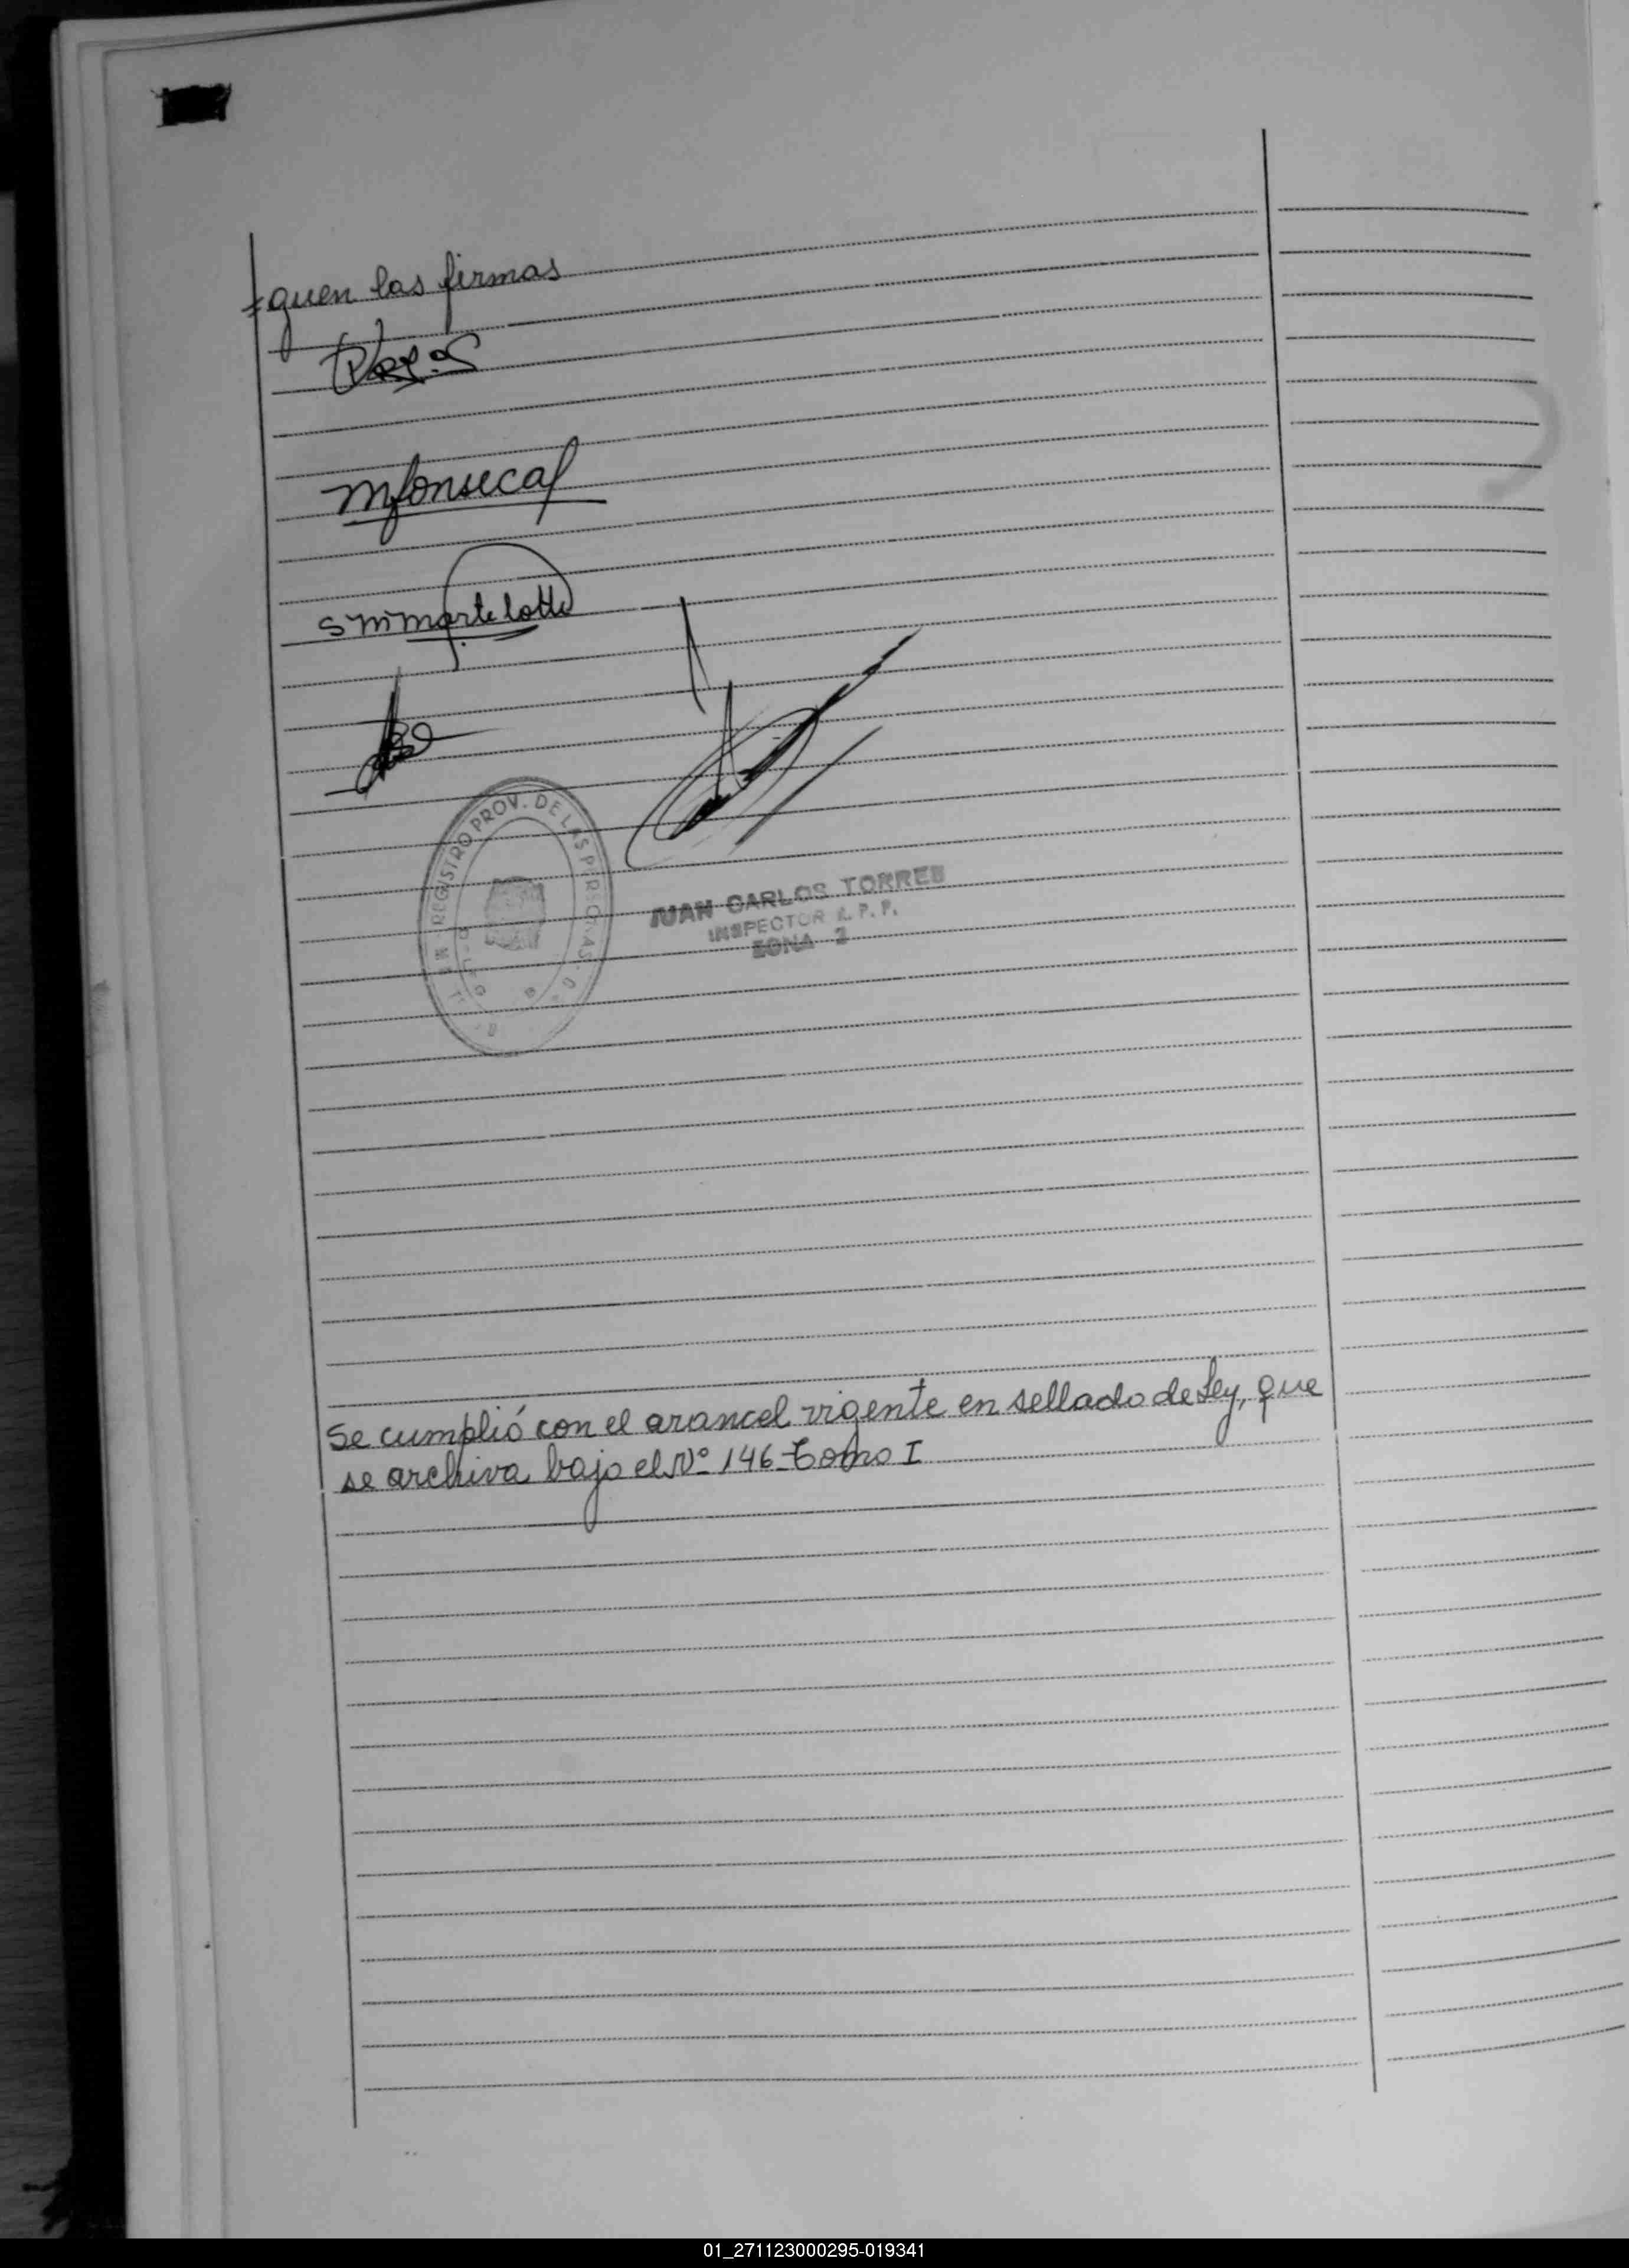 =guen las firmas
mfonseca
S M martelotte
REGISTRO PROV. DE LAS PERSONAS
JUAN CARLOS TORRES
INSPECTOR R. P. P.
ZONA 2
Se cumplió con el arancel vigente en sellado de Ley, que
se archiva bajo el Nº 146 - Tomo I
01_271123000295-019341